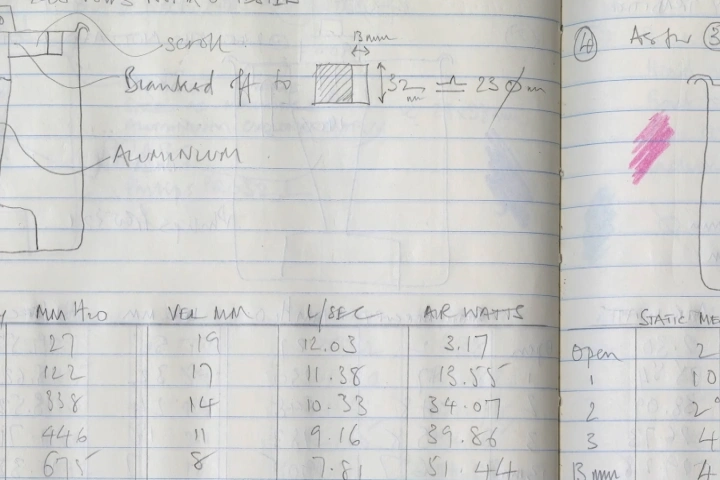 scroll
13mm
Blanked off to 32 mm ≙ 23 ∅ mm
ALUMINIUM.
MM H2O VEL MM L/SEC AIR WATTS
27 19 12.03 3.17
122 17 11.38 13.55
338 14 10.33 34.07
446 11 9.16 39.86
675 8 7.81 51.44
④ As for ③
STATIC ME
Open 2
1 10
2 2
3 4
13mm 4